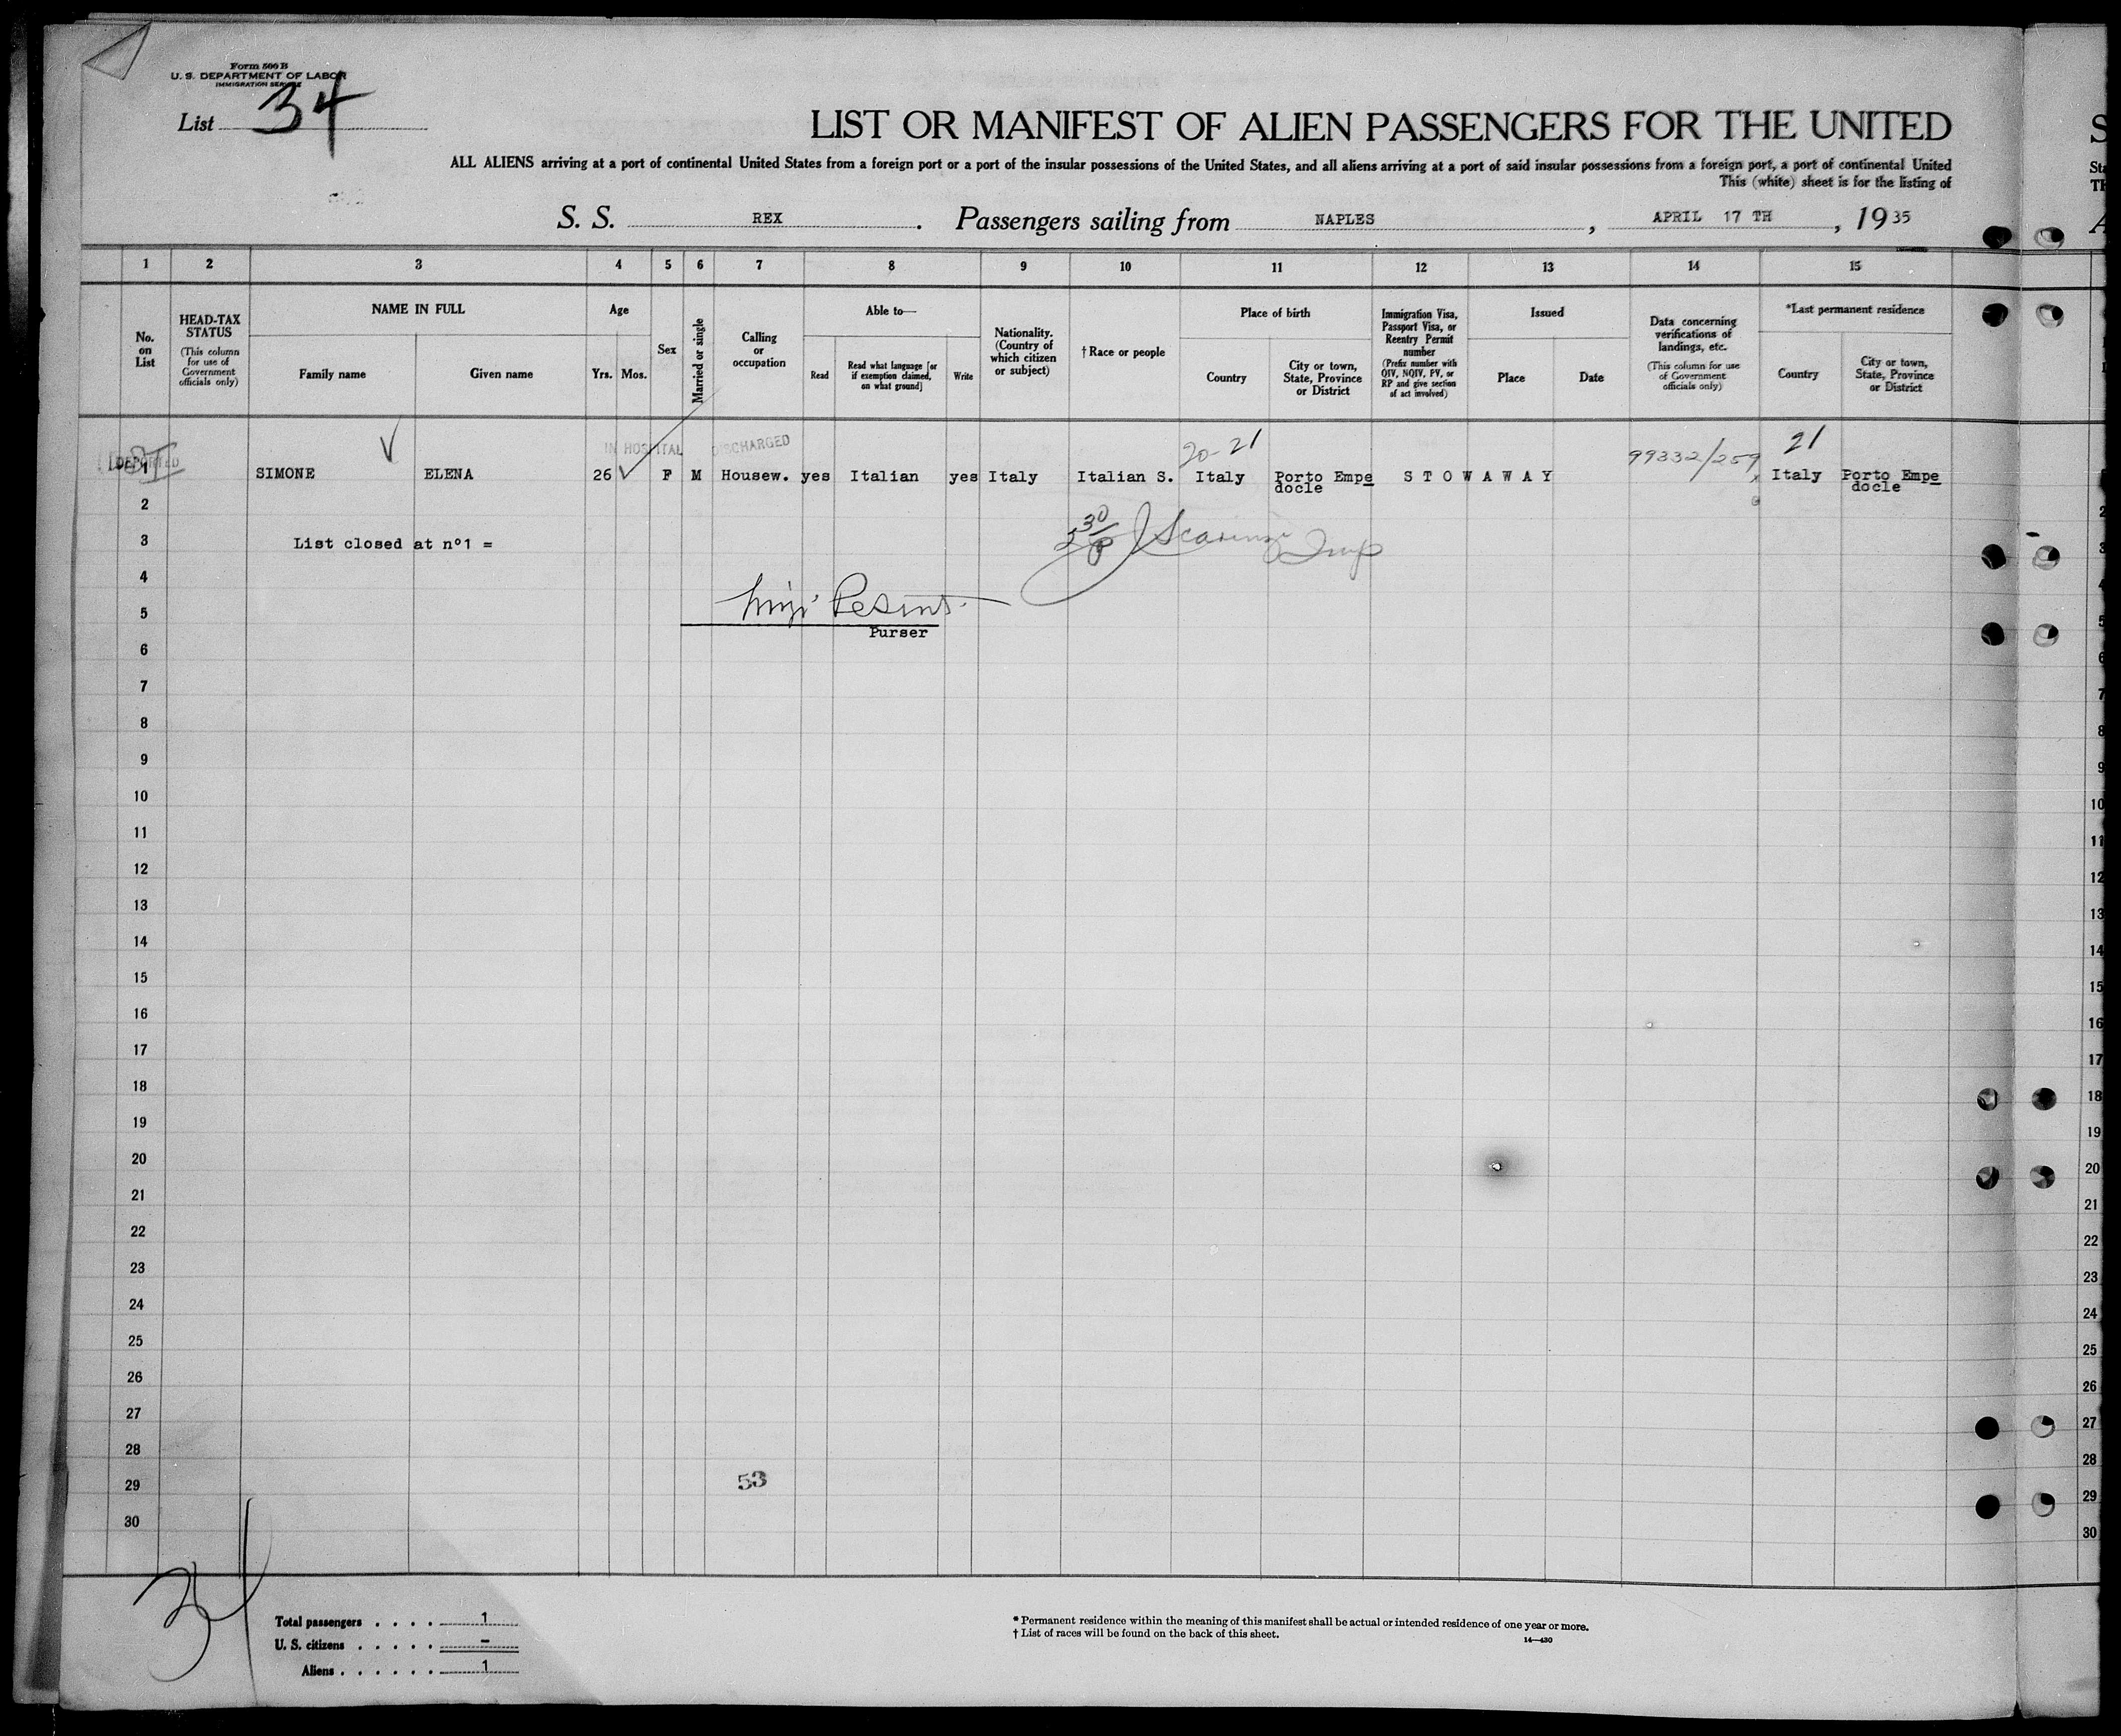 Form 500 B
U. S. DEPARTMENT OF LABOR
IMMIGRATION SERVICE
List 34
LIST OR MANIFEST OF ALIEN PASSENGERS FOR THE UNITED
ALL ALIENS arriving at a port of continental United States from a foreign port or a port of the insular possessions of the United States, and all aliens arriving at a port of said insular possessions from a foreign port, a port of continental United
This (white) sheet is for the listing of
S. S. REX. Passengers sailing from NAPLES, APRIL 17 TH, 1935
1 2 3 4 5 6 7 8 9 10 11 12 13 14 15
No. on List
HEAD-TAX STATUS
(This column for use of Government officials only)
NAME IN FULL
Family name Given name
Age
Yrs. Mos.
Sex
Married or single
Calling or occupation
Able to—
Read
Read what language [or if exemption claimed, on what ground]
Write
Nationality. (Country of which citizen or subject)
†Race or people
Place of birth
Country
City or town, State, Province or District
Immigration Visa, Passport Visa, or Reentry Permit number
(Prefix number with QIV, NQIV, PV, or RP and give section of act involved)
Issued
Place Date
Data concerning verifications of landings, etc.
(This column for use of Government officials only)
*Last permanent residence
Country
City or town, State, Province or District
DEPORTED IN HOSPITAL DISCHARGED 20-21 99332/259 21
1 SIMONE ELENA 26 F M Housew. yes Italian yes Italy Italian S. Italy Porto Empe docle STOWAWAY Italy Porto Empe docle
2
3 List closed at nº1 =
4
5
Purser
6
7
8
9
10
11
12
13
14
15
16
17
18
19
20
21
22
23
24
25
26
27
28
29
53
30
34
Total passengers . . . . 1
U. S. citizens . . . . . –
Aliens . . . . . . 1
* Permanent residence within the meaning of this manifest shall be actual or intended residence of one year or more.
† List of races will be found on the back of this sheet.
14—430